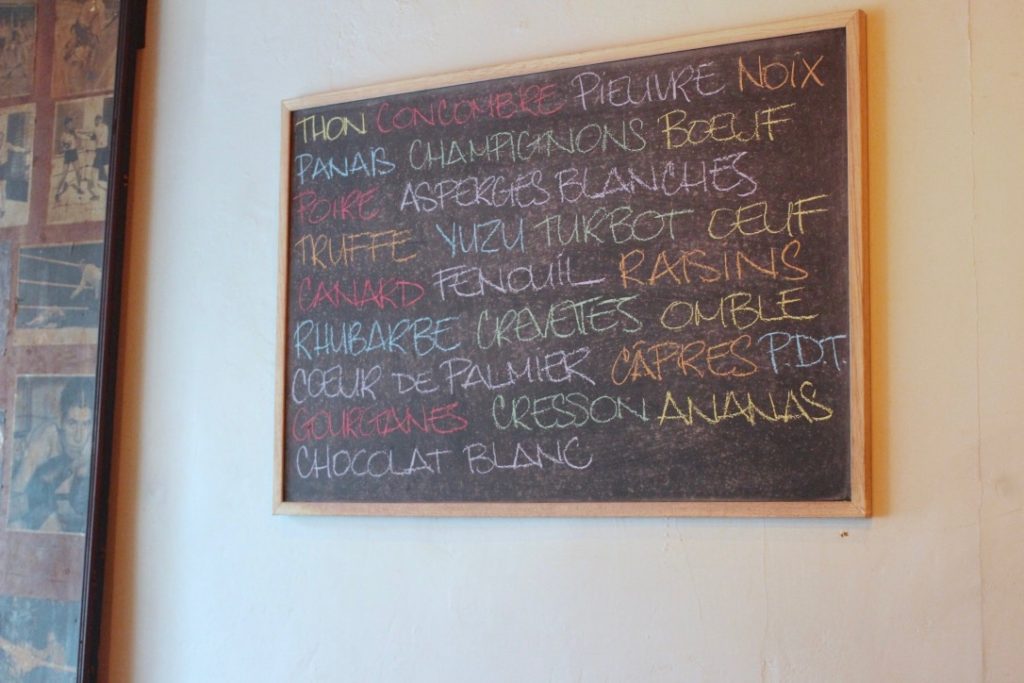 THON CONCOMBRE PIEUVRE NOIX
PANAIS CHAMPIGNONS BOEUF
POIRE ASPERGES BLANCHES
TRUFFE YUZU TURBOT OEUF
CANARD FENOUIL RAISINS
RHUBARBE CREVETTES OMBLE
COEUR DE PALMIER CÂPRES P.D.T.
GOURGANES CRESSON ANANAS
CHOCOLAT BLANC